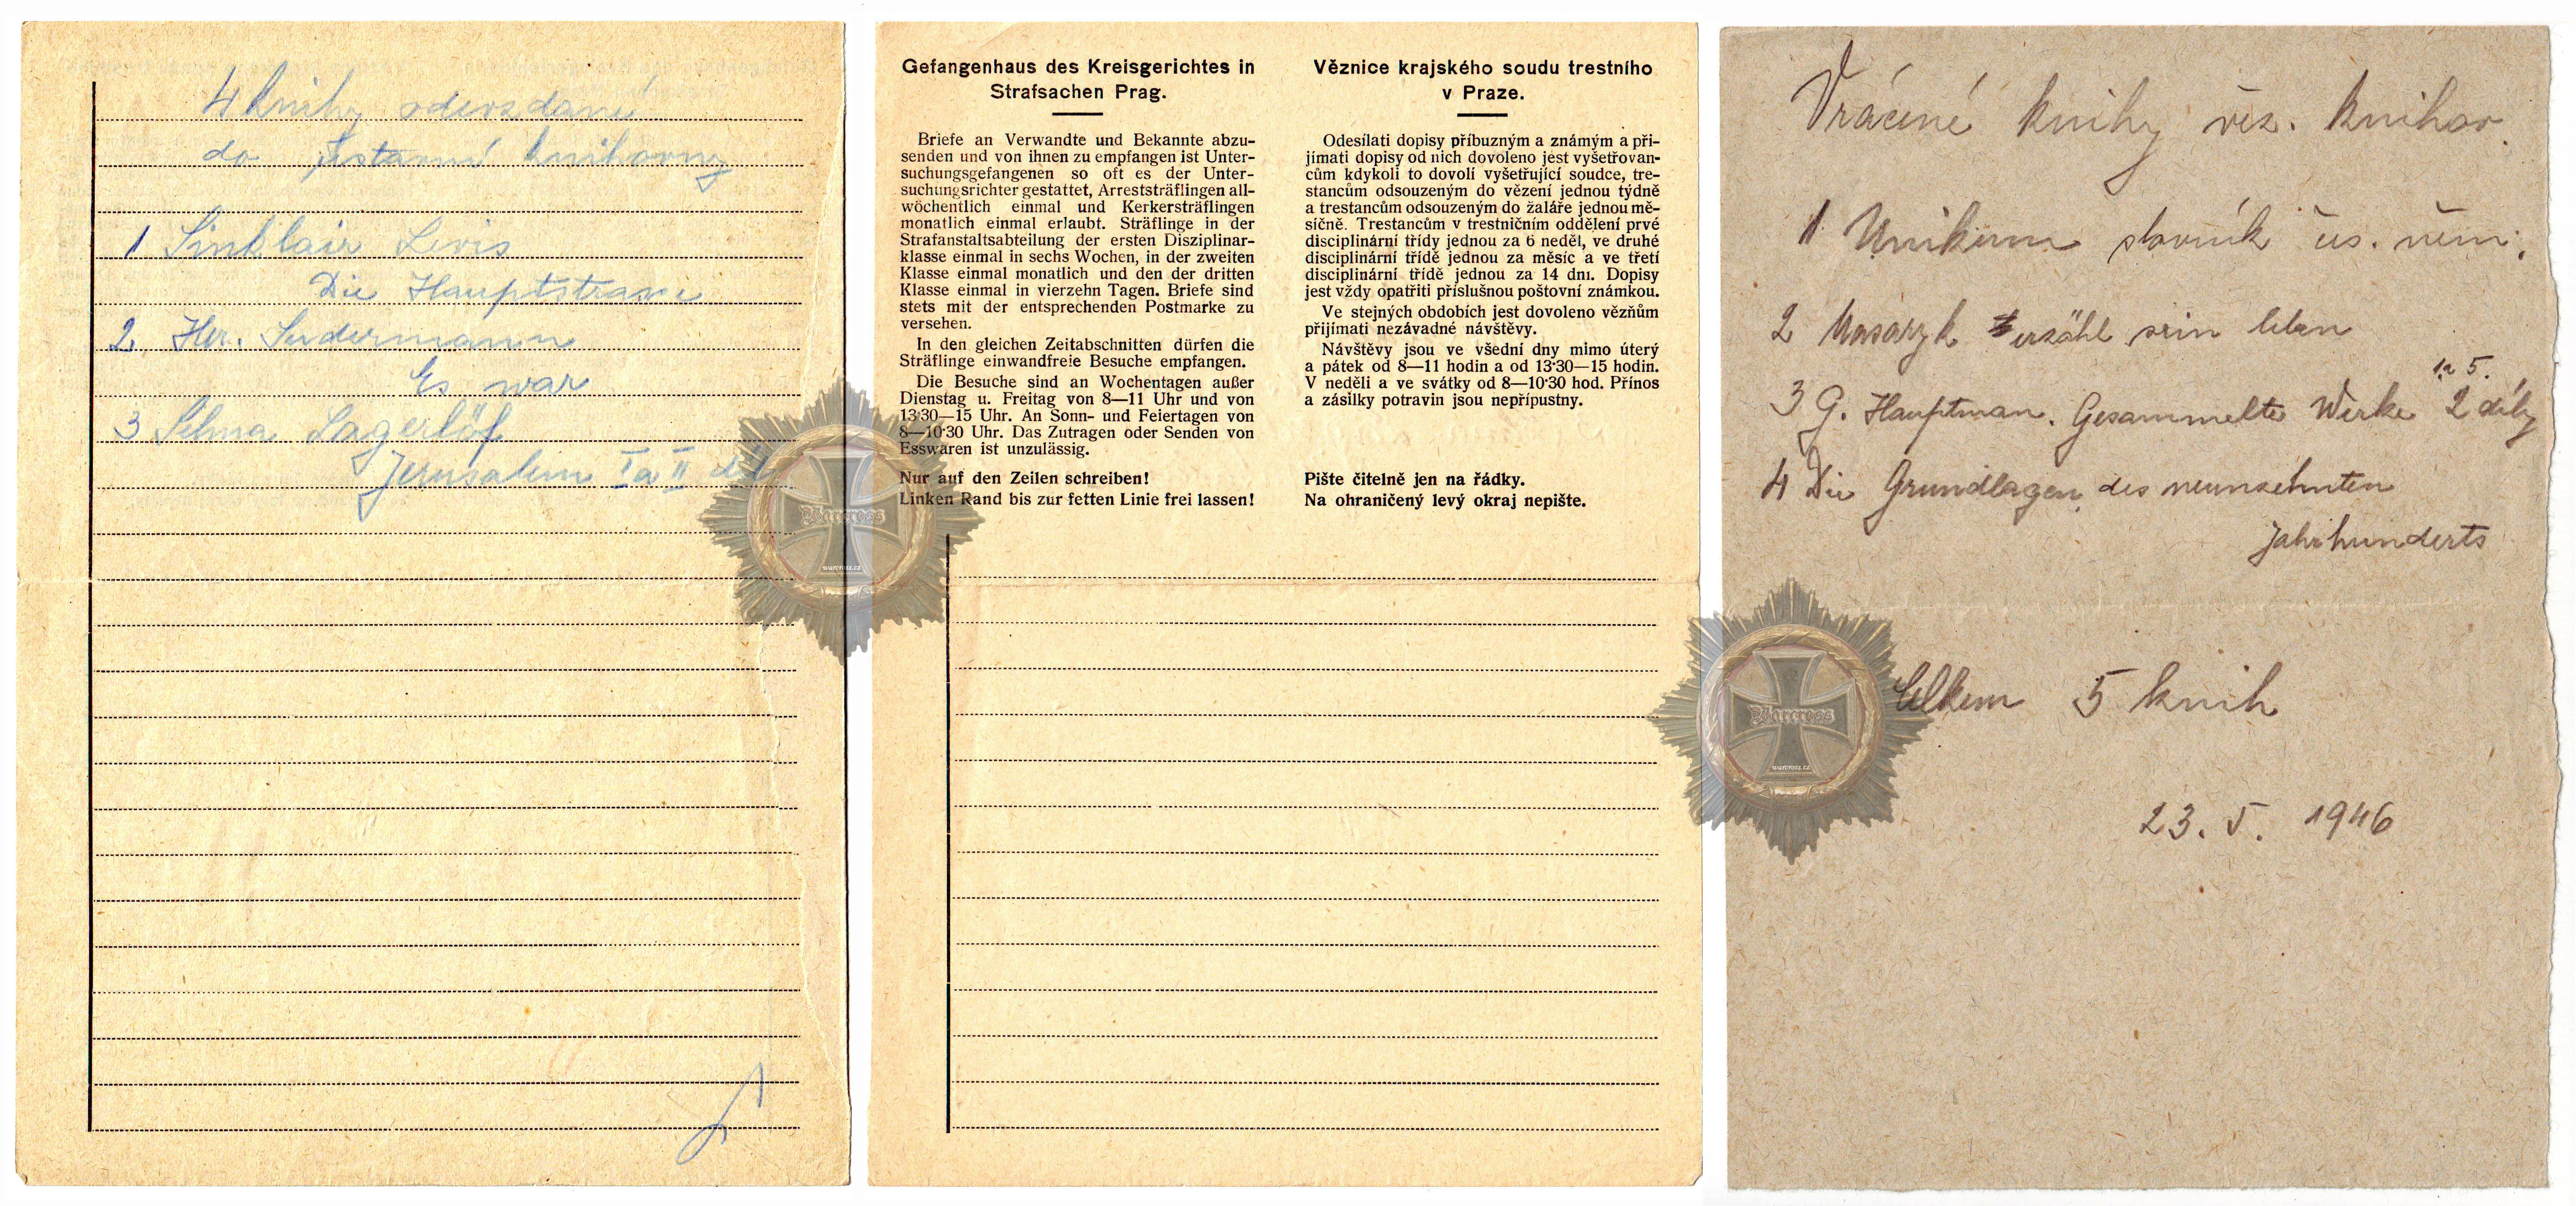 4 knihy odevzdané
do ústavní knihovny
1 Sinklair Levis
Die Hauptstrasse
2. Her. Sudermann
Es war
3 Selma Lagerlöf
Jerusalem I a II díl
Gefangenhaus des Kreisgerichtes in
Strafsachen Prag.
Briefe an Verwandte und Bekannte abzu-
senden und von ihnen zu empfangen ist Unter-
suchungsgefangenen so oft es der Unter-
suchungsrichter gestattet, Arreststräflingen all-
wöchentlich einmal und Kerkersträflingen
monatlich einmal erlaubt. Sträflinge in der
Strafanstaltsabteilung der ersten Disziplinar-
klasse einmal in sechs Wochen, in der zweiten
Klasse einmal monatlich und den der dritten
Klasse einmal in vierzehn Tagen. Briefe sind
stets mit der entsprechenden Postmarke zu
versehen.
In den gleichen Zeitabschnitten dürfen die
Sträflinge einwandfreie Besuche empfangen.
Die Besuche sind an Wochentagen außer
Dienstag u. Freitag von 8—11 Uhr und von
13·30—15 Uhr. An Sonn- und Feiertagen von
8—10·30 Uhr. Das Zutragen oder Senden von
Esswaren ist unzulässig.
Nur auf den Zeilen schreiben!
Linken Rand bis zur fetten Linie frei lassen!
Věznice krajského soudu trestního
v Praze.
Odesílati dopisy příbuzným a známým a při-
jímati dopisy od nich dovoleno jest vyšetřovan-
cům kdykoli to dovolí vyšetřující soudce, tre-
stancům odsouzeným do vězení jednou týdně
a trestancům odsouzeným do žaláře jednou mě-
síčně. Trestancům v trestničním oddělení prvé
disciplinární třídy jednou za 6 neděl, ve druhé
disciplinární třídě jednou za měsíc a ve třetí
disciplinární třídě jednou za 14 dní. Dopisy
jest vždy opatřiti příslušnou poštovní známkou.
Ve stejných obdobích jest dovoleno vězňům
přijímati nezávadné návštěvy.
Návštěvy jsou ve všední dny mimo úterý
a pátek od 8—11 hodin a od 13·30—15 hodin.
V neděli a ve svátky od 8—10·30 hod. Přínos
a zásilky potravin jsou nepřípustny.
Pište čitelně jen na řádky.
Na ohraničený levý okraj nepište.
Warcross
warcross.cz
Vrácené knihy věz. knihov.
1 Unikum slovník čes. něm.
2 Masaryk erzähl sein leben
1 a 5.
3 G. Hauptman. Gesammelte Werke 2 díly
4 Die Grundlagen des neunzehnten
Jahrhunderts
Celkem 5 knih
23. 5. 1946
Warcross
warcross.cz